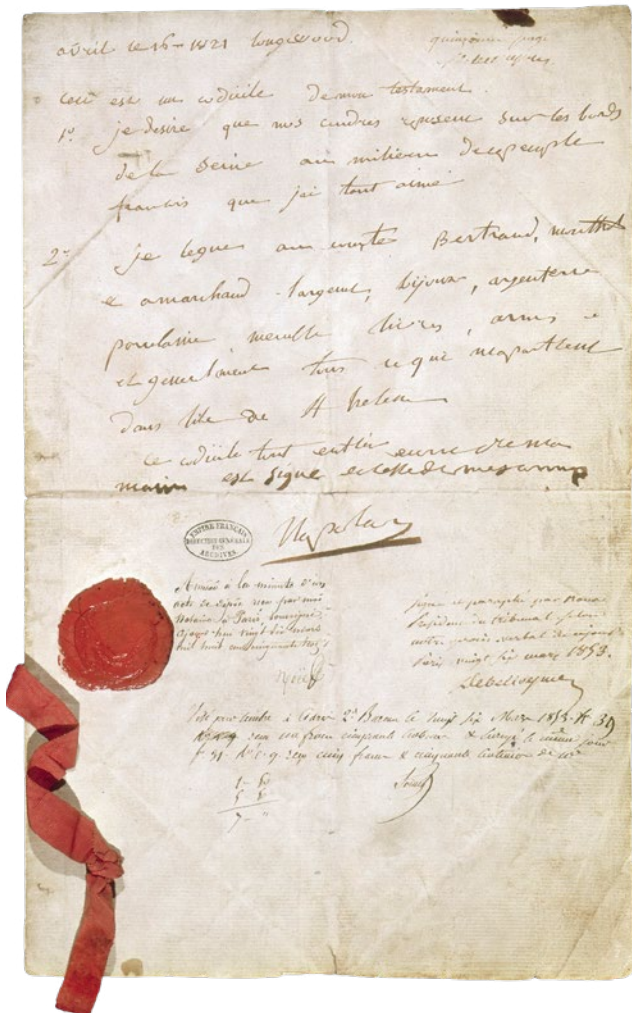 avril le 16 - 1821 longwood.
ceci est un codicile de mon testament.
1° je desire que mes cendres reposent sur les bords
de la Seine au milieu du peuple
francais que j'ai tant aimé
2° je legue au comte Bertrand, montholon
et a marchand l'argent, bijoux, argenterie
porcelaine, meuble livres, armes
et generalement tous ce qui m'apartient
dans l'ile de St helene
ce codicile tout entier ecrit de ma
main est signé et de mes armes
Napoleon
EMPIRE FRANÇAIS
DIRECTION GÉNÉRALE
DES
ARCHIVES
Annexé à la minute d'un
acte de dépôt reçu par moi
Notaire à Paris, soussigné,
vingt six mars
mil huit cent cinquante trois
signé et paraphé par nous
Président du tribunal selon
notre procès verbal de ce jour
Paris vingt six mars 1853.
Debelleyme
Visé pour timbre à Paris 2e Bureau le vingt six Mars 1853
cinquante centimes le même jour
cinq francs & cinquante centimes